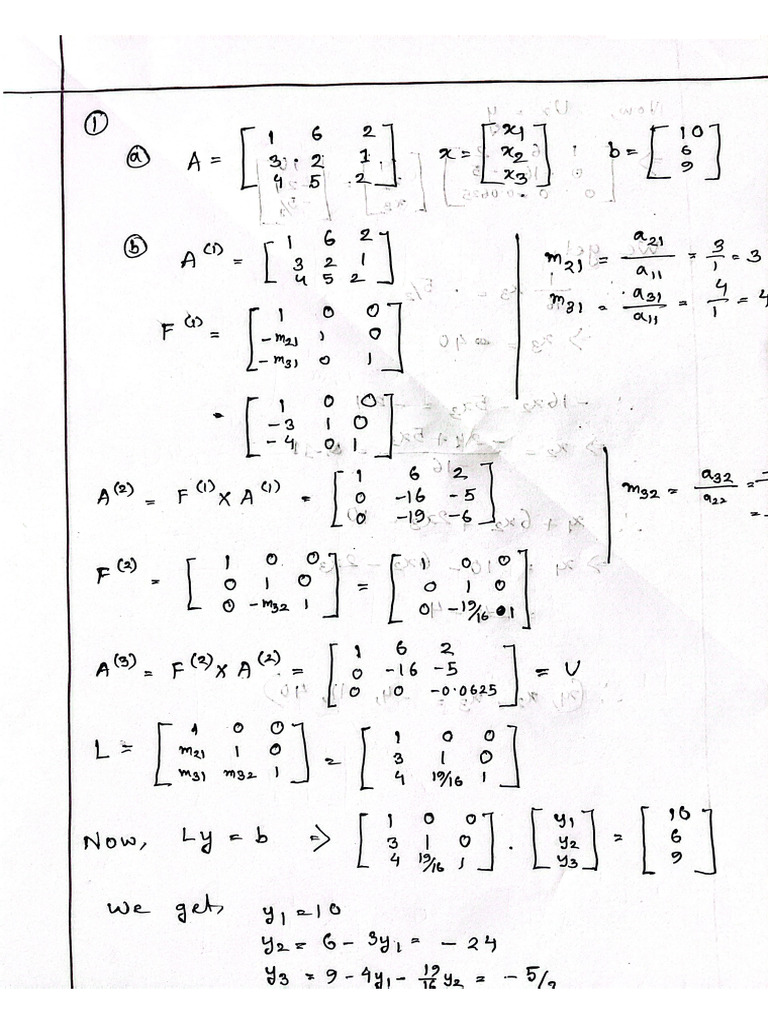 ①
ⓐ A = [1 6 2; 3 2 1; 4 5 2] x = [x1; x2; x3] b = [10; 6; 9]
ⓑ A^(1) = [1 6 2; 3 2 1; 4 5 2] m21 = a21/a11 = 3/1 = 3
m31 = a31/a11 = 4/1 = 4
F^(1) = [1 0 0; -m21 1 0; -m31 0 1]
= [1 0 0; -3 1 0; -4 0 1]
A^(2) = F^(1) × A^(1) = [1 6 2; 0 -16 -5; 0 -19 -6] m32 = a32/a22 =
F^(2) = [1 0 0; 0 1 0; 0 -m32 1] = [1 0 0; 0 1 0; 0 -19/16 1]
A^(3) = F^(2) × A^(2) = [1 6 2; 0 -16 -5; 0 0 -0.0625] = U
L = [1 0 0; m21 1 0; m31 m32 1] = [1 0 0; 3 1 0; 4 19/16 1]
Now, Ly = b => [1 0 0; 3 1 0; 4 19/16 1] . [y1; y2; y3] = [10; 6; 9]
We get, y1 = 10
y2 = 6 - 3y1 = -24
y3 = 9 - 4y1 - 19/16 y2 = -5/2